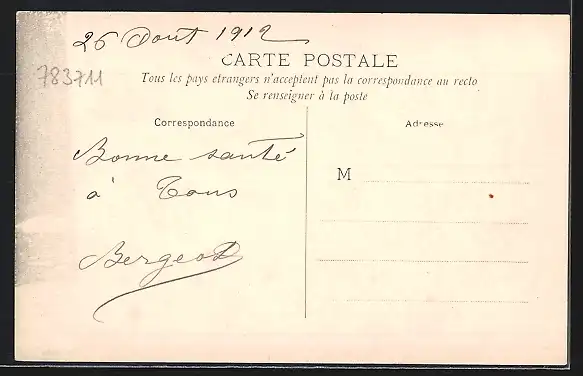 26 Aout 1912
CARTE POSTALE
783711
Tous les pays etrangers n'acceptent pas la correspondance au recto
Se renseigner à la poste
Correspondance
Adresse
Bonne santé
à Tous
M
Bergeod